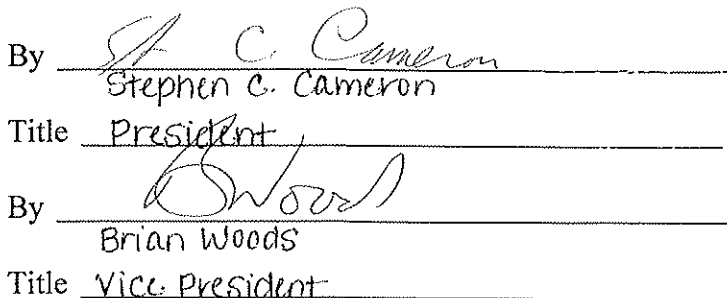 By St C. Cameron
Stephen C. Cameron
Title President
By BWoods
Brian Woods
Title Vice President